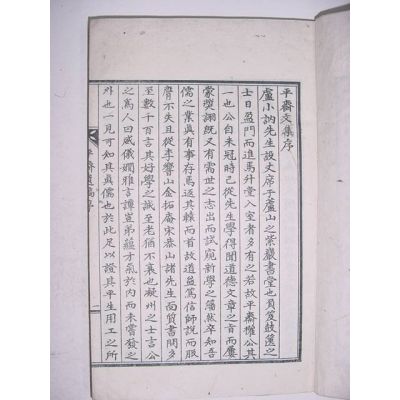 平齋文集序
盧小訥先生設丈席于蘆山之紫巖書堂也負笈鼓篋之
士日盈門而進馬升堂入室者多有之若故平齋權公其
一也公自未冠時已從先生學得聞道德文章之旨而屢
蒙獎詡旣又有需世之志出而試窺新學之藩然卒知吾
儒之業眞有事存焉返其轅而首故道益篤信師說而服
膺不失且從李響山金拓庵宋恭山諸先生面質書問多
至數千百言其好學之誠至老猶不衰也凝州之士言公
之爲人曰威儀嫺雅言譚豈弟蘊才氣於內而未嘗發之
外也一見可知其眞儒也於此足以證其平生用工之所
平齋遺稿 序
一